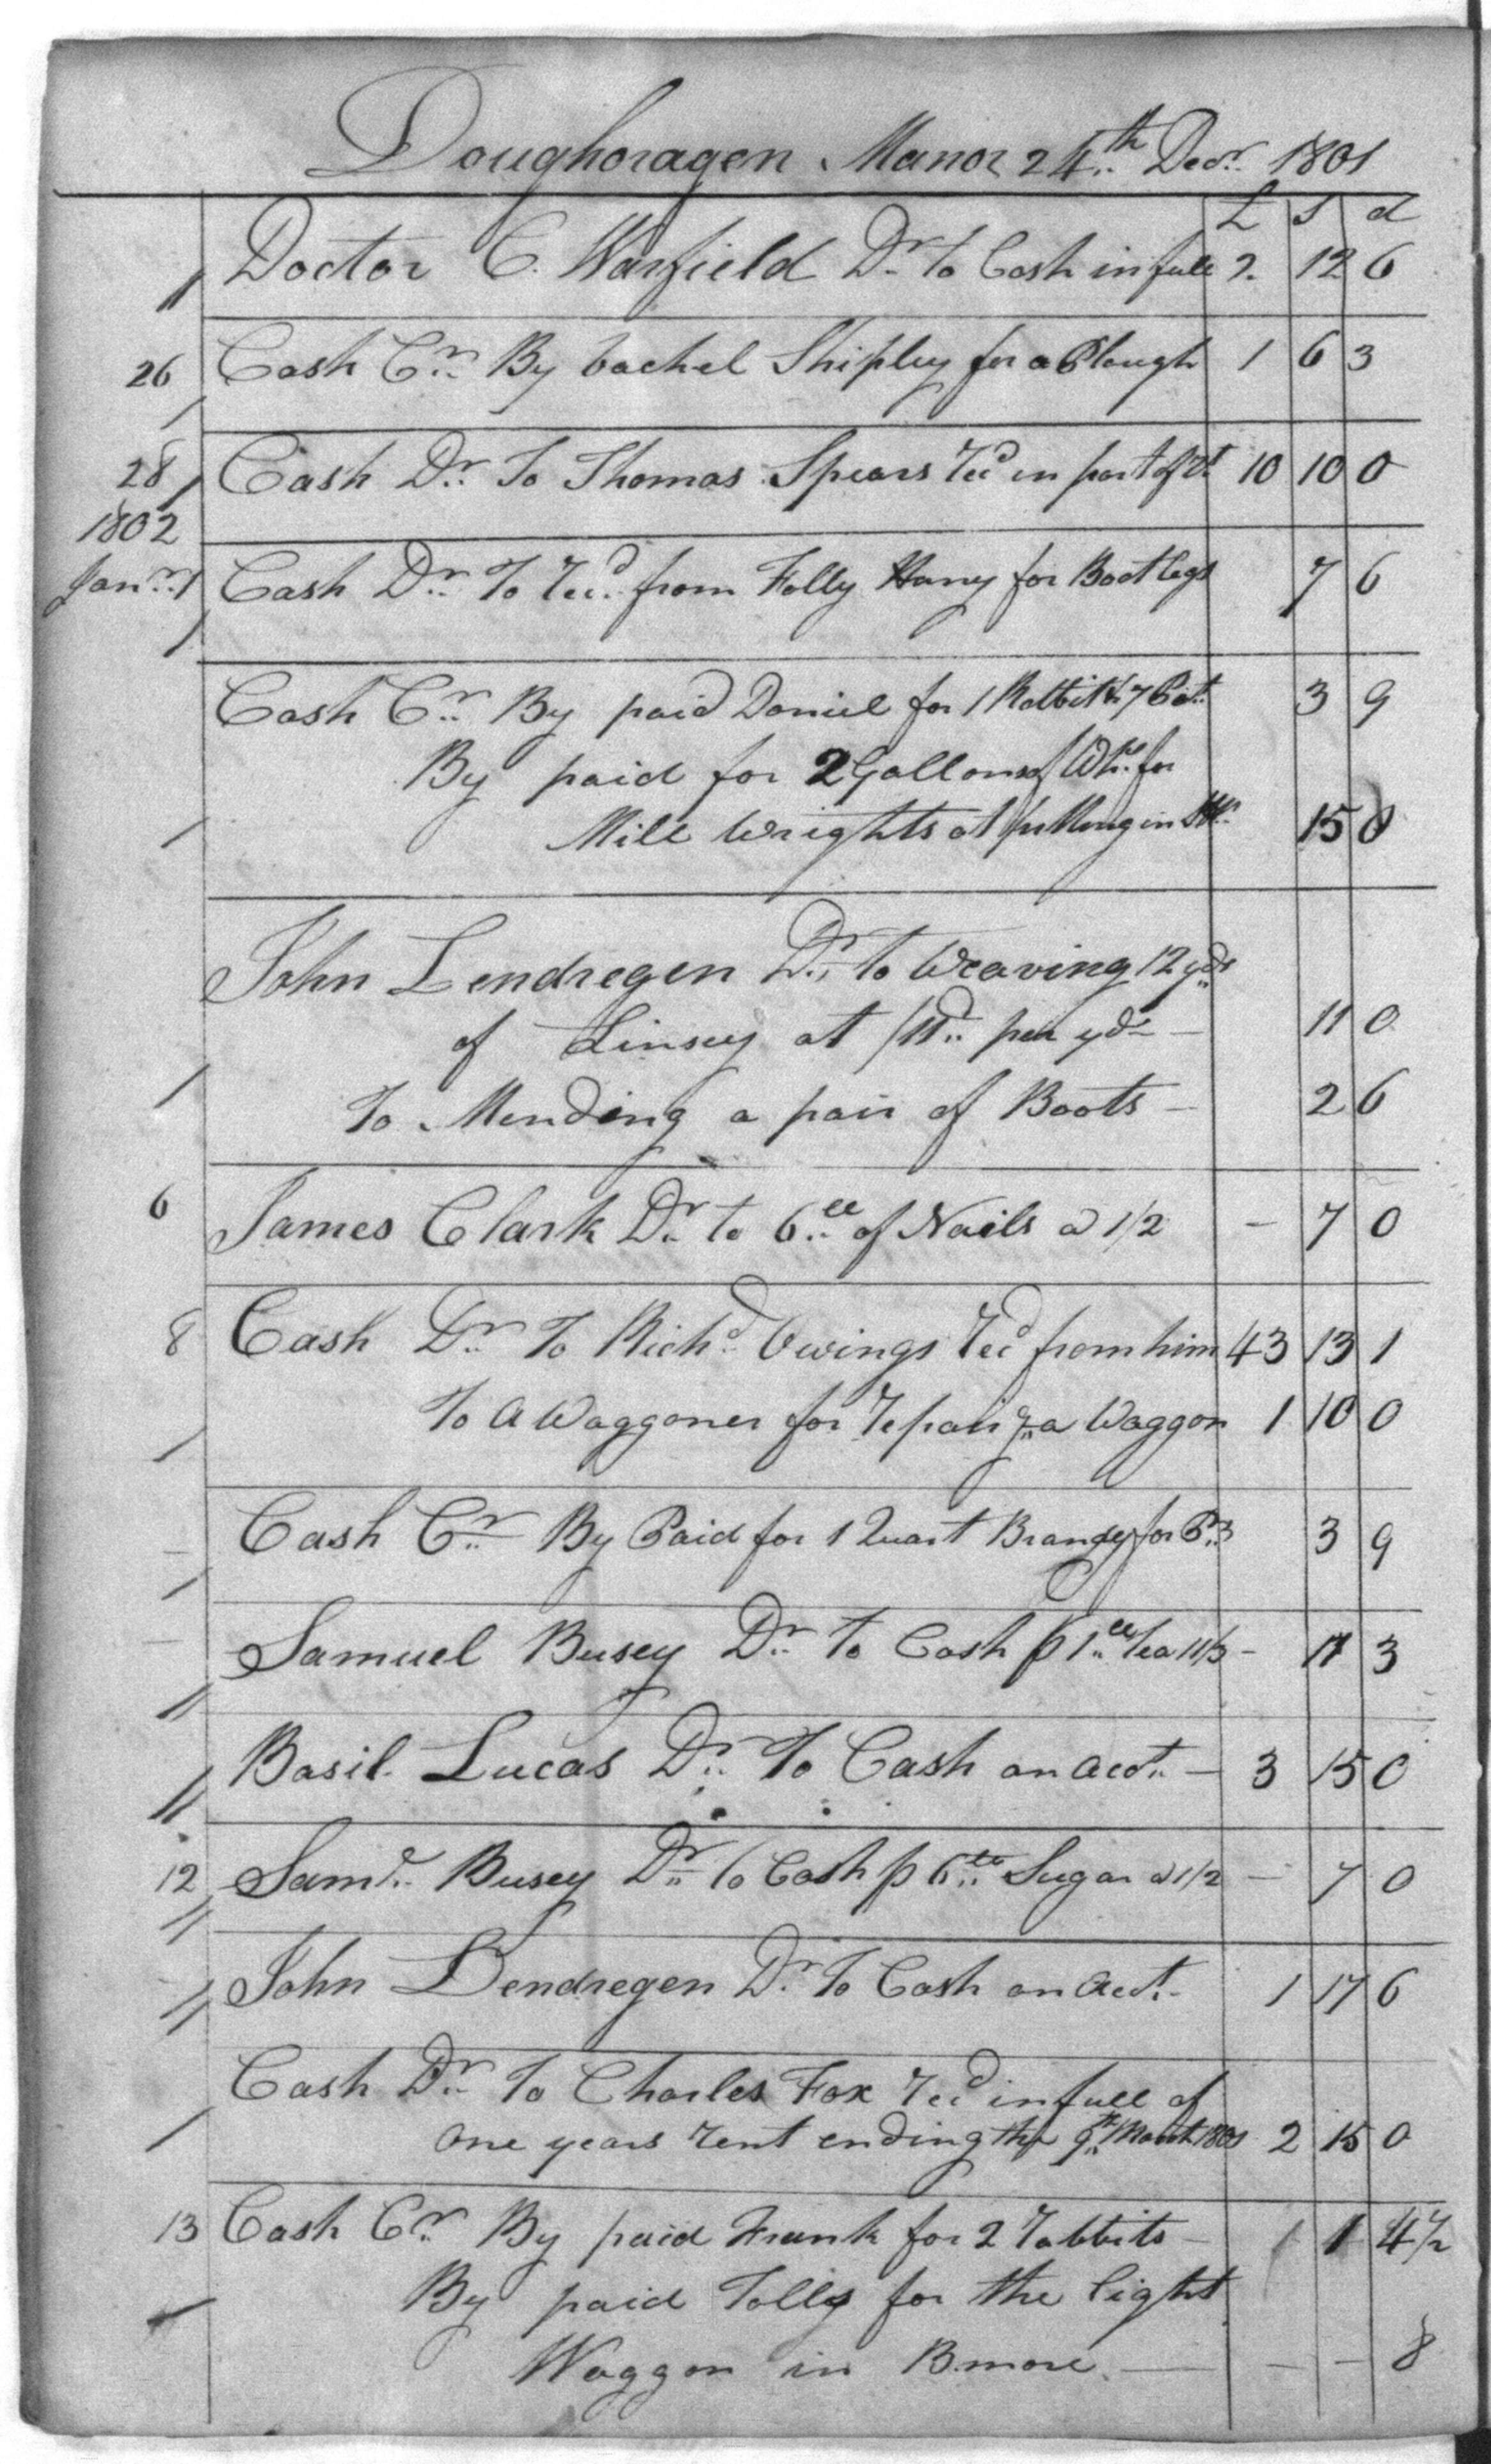 Doughoragen Manor 24th Decr 1801
£ S d
Doctor C. Warfield Dr to Cash in full 2 12 6
26 Cash Cr By vachel Shipley for a Plough 1 6 3
28 Cash Dr To Thomas Spears recd in part of 10 10 0
1802
Janr 1 Cash Dr To recd from Folly Harry for Boot legs 7 6
Cash Cr By paid Daniel for 1 Rabbit & 7 3 9
By paid for 2 Gallons of for
Mill wrights at putting in 15 0
John Lendregen Dr to Weaving 12 yds
of Linsey at /11d per yd - 11 0
To Mending a pair of Boots - 2 6
6 James Clark Dr to 6 ll of Nails a 1/2 - 7 0
8 Cash Dr To Richd Owings recd from him 43 13 1
To A Waggoner for repairg a Waggon 1 10 0
Cash Cr By Paid for 1 Quart Brandy for 3 9
Samuel Busey Dr To Cash p 1 ll Tea 11/3 - 11 3
Basil Lucas Dr To Cash on acct - 3 15 0
12 Saml Busey Dr to Cash p 6 ll Sugar a 1/2 - 7 0
John Lendregen Dr To Cash on acct - 1 17 6
Cash Dr To Charles Fox recd in full of
one years rent ending the 9th March 1801 2 15 0
13 Cash Cr By paid Frank for 2 rabbits - 1 4 1/2
By paid Tolls for the light
Waggon in Bmore - - - 8